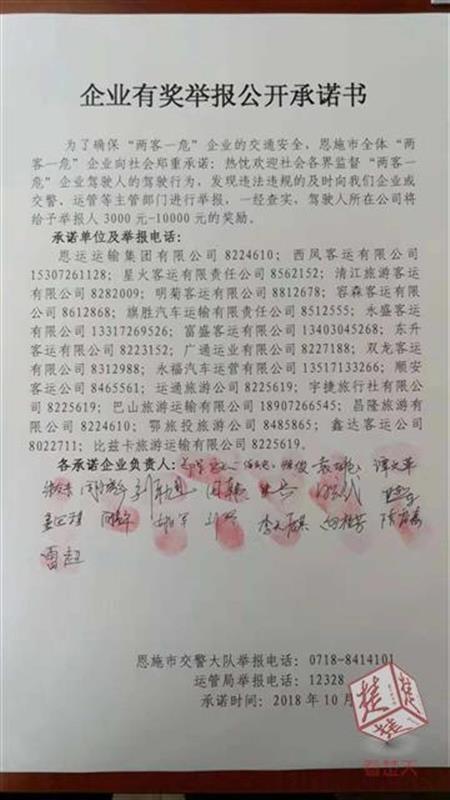 企业有奖举报公开承诺书
为了确保“两客一危”企业的交通安全，恩施市全体“两
客一危”企业向社会郑重承诺：热忱欢迎社会各界监督“两客一
危”企业驾驶人的驾驶行为，发现违法违规的及时向我们企业或
交警、运管等主管部门进行举报，一经查实，驾驶人所在公司将
给予举报人3000元-10000元的奖励。
承诺单位及举报电话：
恩运运输集团有限公司 8224610；西凤客运有限公司
15307261128；星火客运有限责任公司 8562152；清江旅游客运
有限公司 8282009；明菊客运有限公司 8812678；容森客运有限
公司 8612868；旗胜汽车运输有限责任公司 8512555；永盛客运
有限公司 13317269526；富盛客运有限公司 13403045268；东升
客运有限公司 8223152；广通运业有限公司 8227188；双龙客运
有限公司 8312988；永福汽车运营有限公司 13517133266；顺安
客运公司 8465561；运通旅游公司 8225619；宇捷旅行社有限公
司 8225619；巴山旅游运输有限公司 18907266545；昌隆旅游有
限公司 8224610；鄂旅投旅游公司 8485865；鑫达客运公司
8022711；比兹卡旅游运输有限公司 8225619。
各承诺企业负责人：
雷超
恩施市交警大队举报电话：0718-8414101
运管局举报电话：12328
承诺时间：2018 年 10 月
楚楚
看楚天